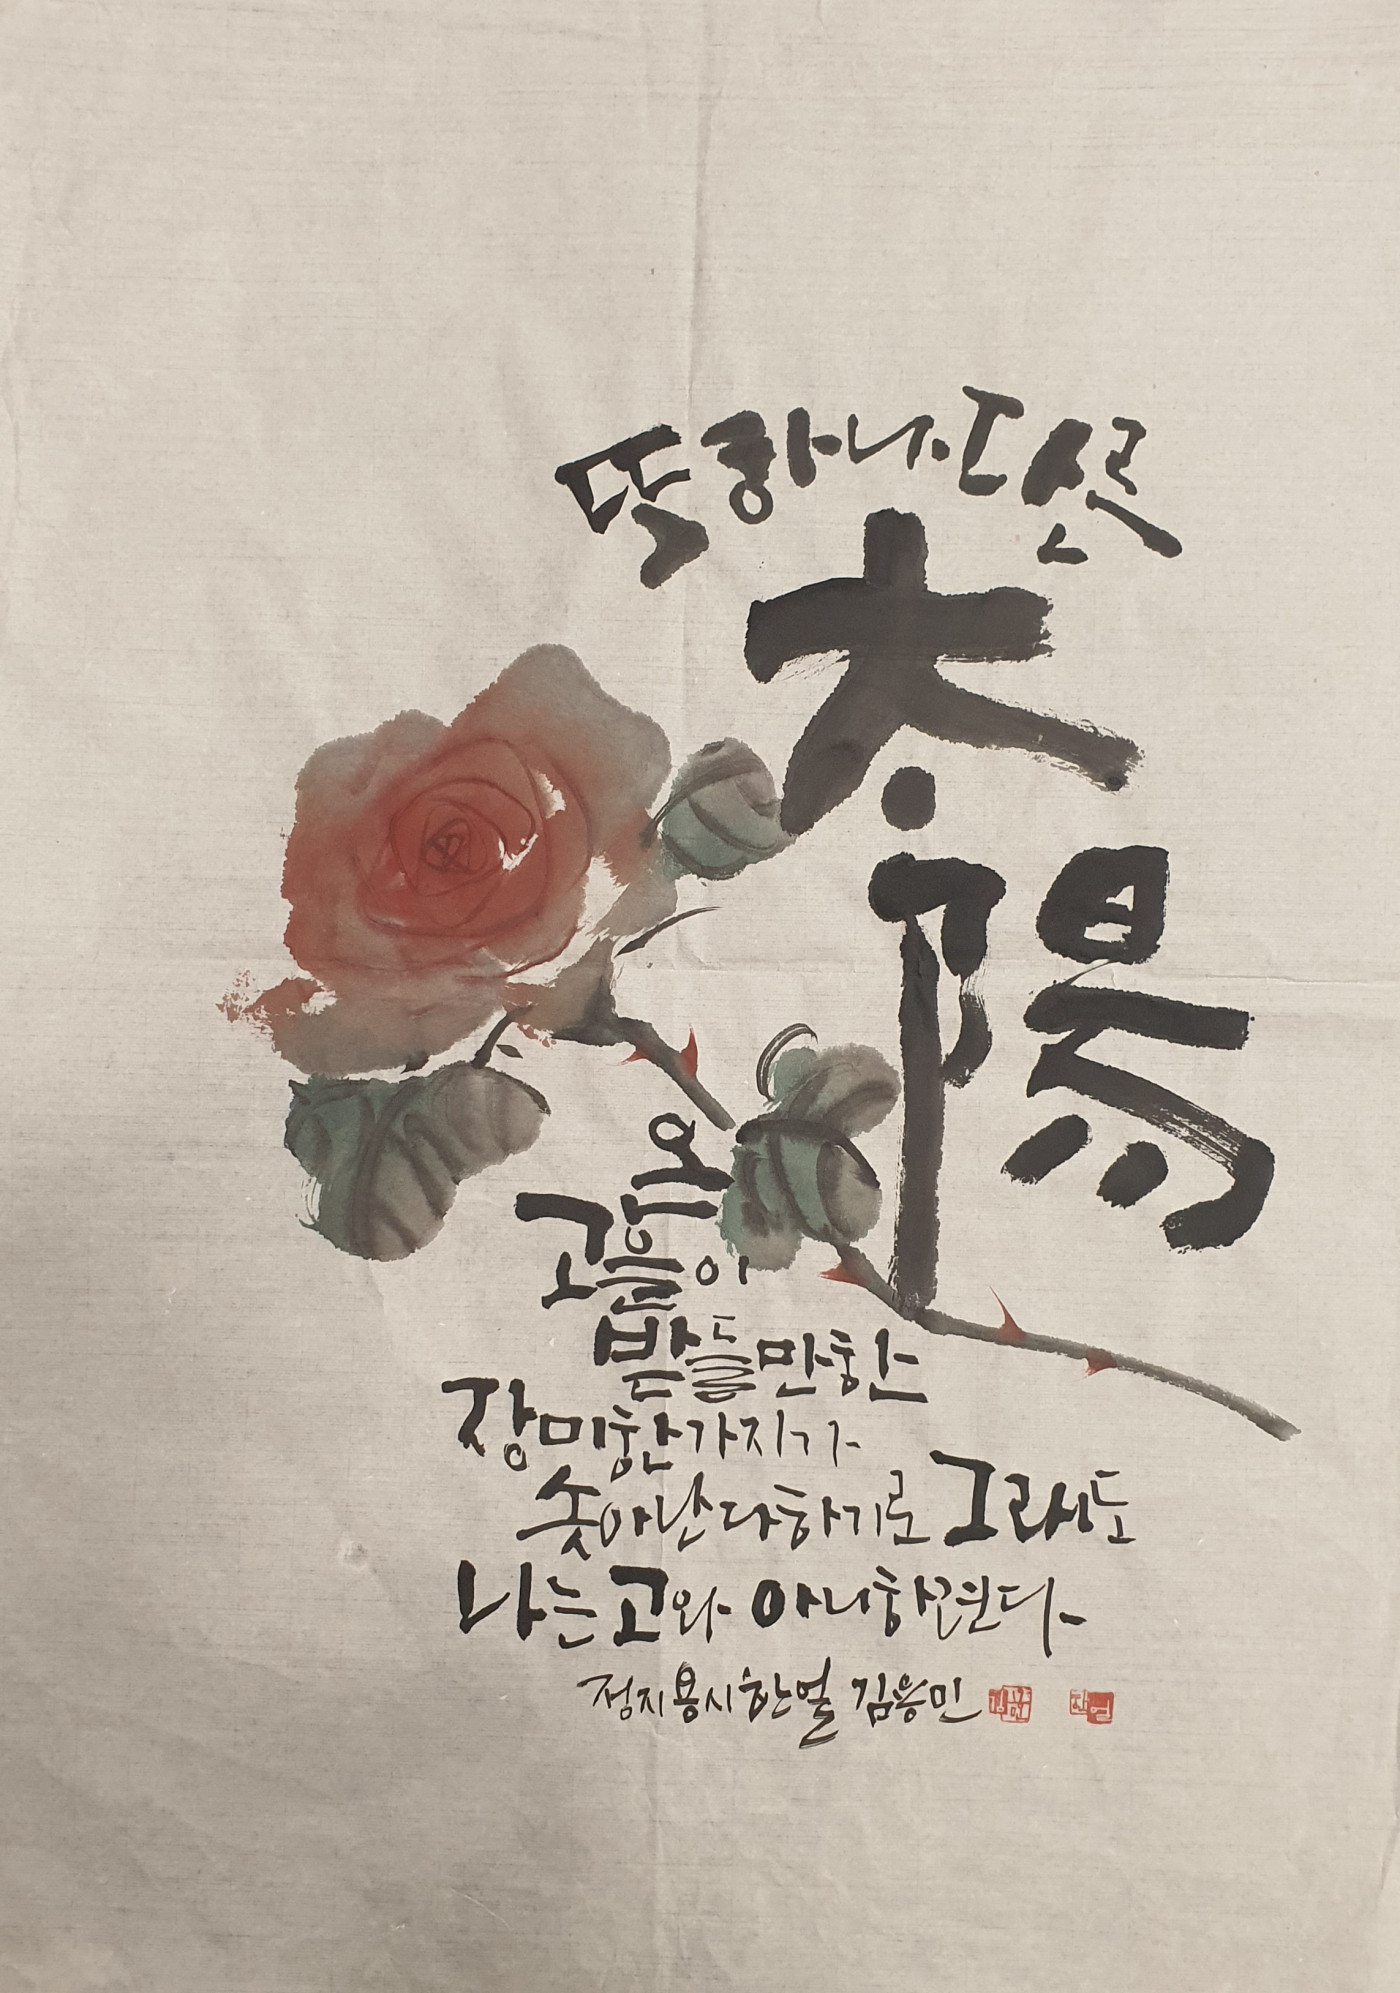 또하나다른
太
陽
온
고을이
받들만한
장미한가지가
솟아난다하기로 그래도
나는 고와 아니하련다
정지용시 한얼